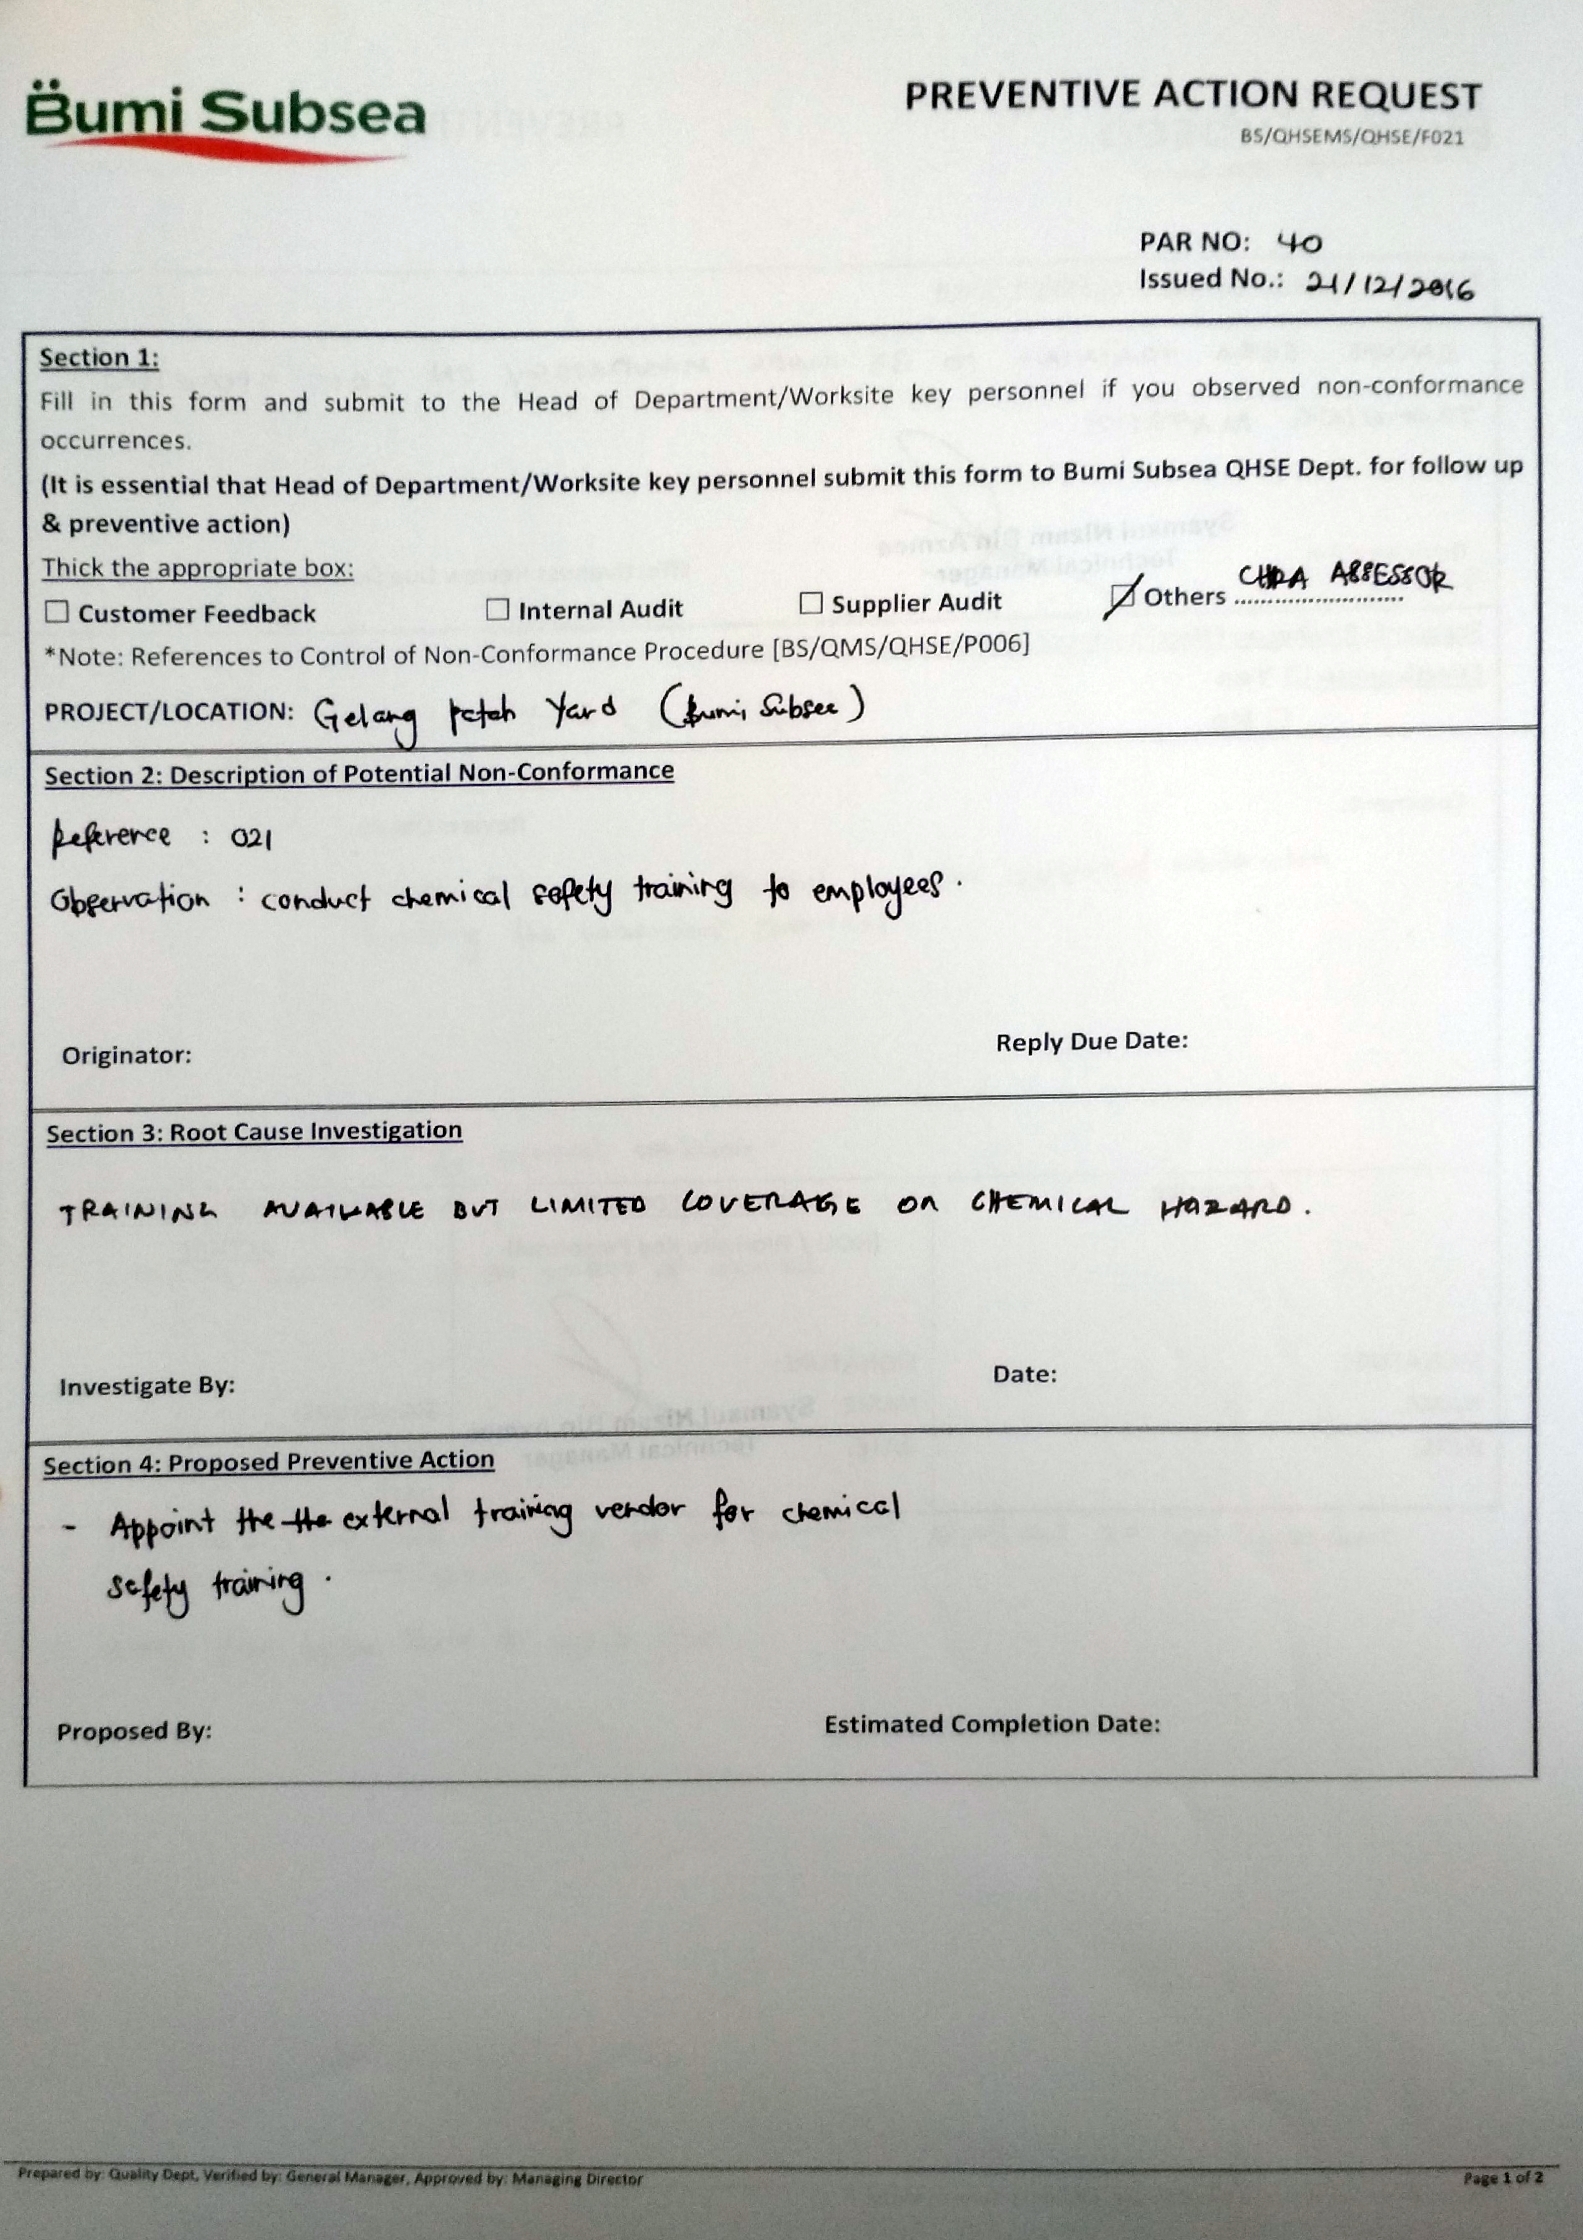 Bumi Subsea
PREVENTIVE ACTION REQUEST
BS/QHSEMS/QHSE/F021
PAR NO: 40
Issued No.: 21/12/2016
Section 1:
Fill in this form and submit to the Head of Department/Worksite key personnel if you observed non-conformance
occurrences.
(It is essential that Head of Department/Worksite key personnel submit this form to Bumi Subsea QHSE Dept. for follow up
& preventive action)
Thick the appropriate box:
☐ Customer Feedback ☐ Internal Audit ☐ Supplier Audit ☑ Others CHRA ASSESSOR
*Note: References to Control of Non-Conformance Procedure [BS/QMS/QHSE/P006]
PROJECT/LOCATION: Gelang patah Yard (Bumi Subsea)
Section 2: Description of Potential Non-Conformance
Reference : 021
Observation : conduct chemical safety training to employees.
Originator: Reply Due Date:
Section 3: Root Cause Investigation
TRAINING AVAILABLE BUT LIMITED COVERAGE ON CHEMICAL HAZARD.
Investigate By: Date:
Section 4: Proposed Preventive Action
- Appoint the the external training vendor for chemical
safety training.
Proposed By: Estimated Completion Date:
Prepared by: Quality Dept, Verified by: General Manager, Approved by: Managing Director Page 1 of 2